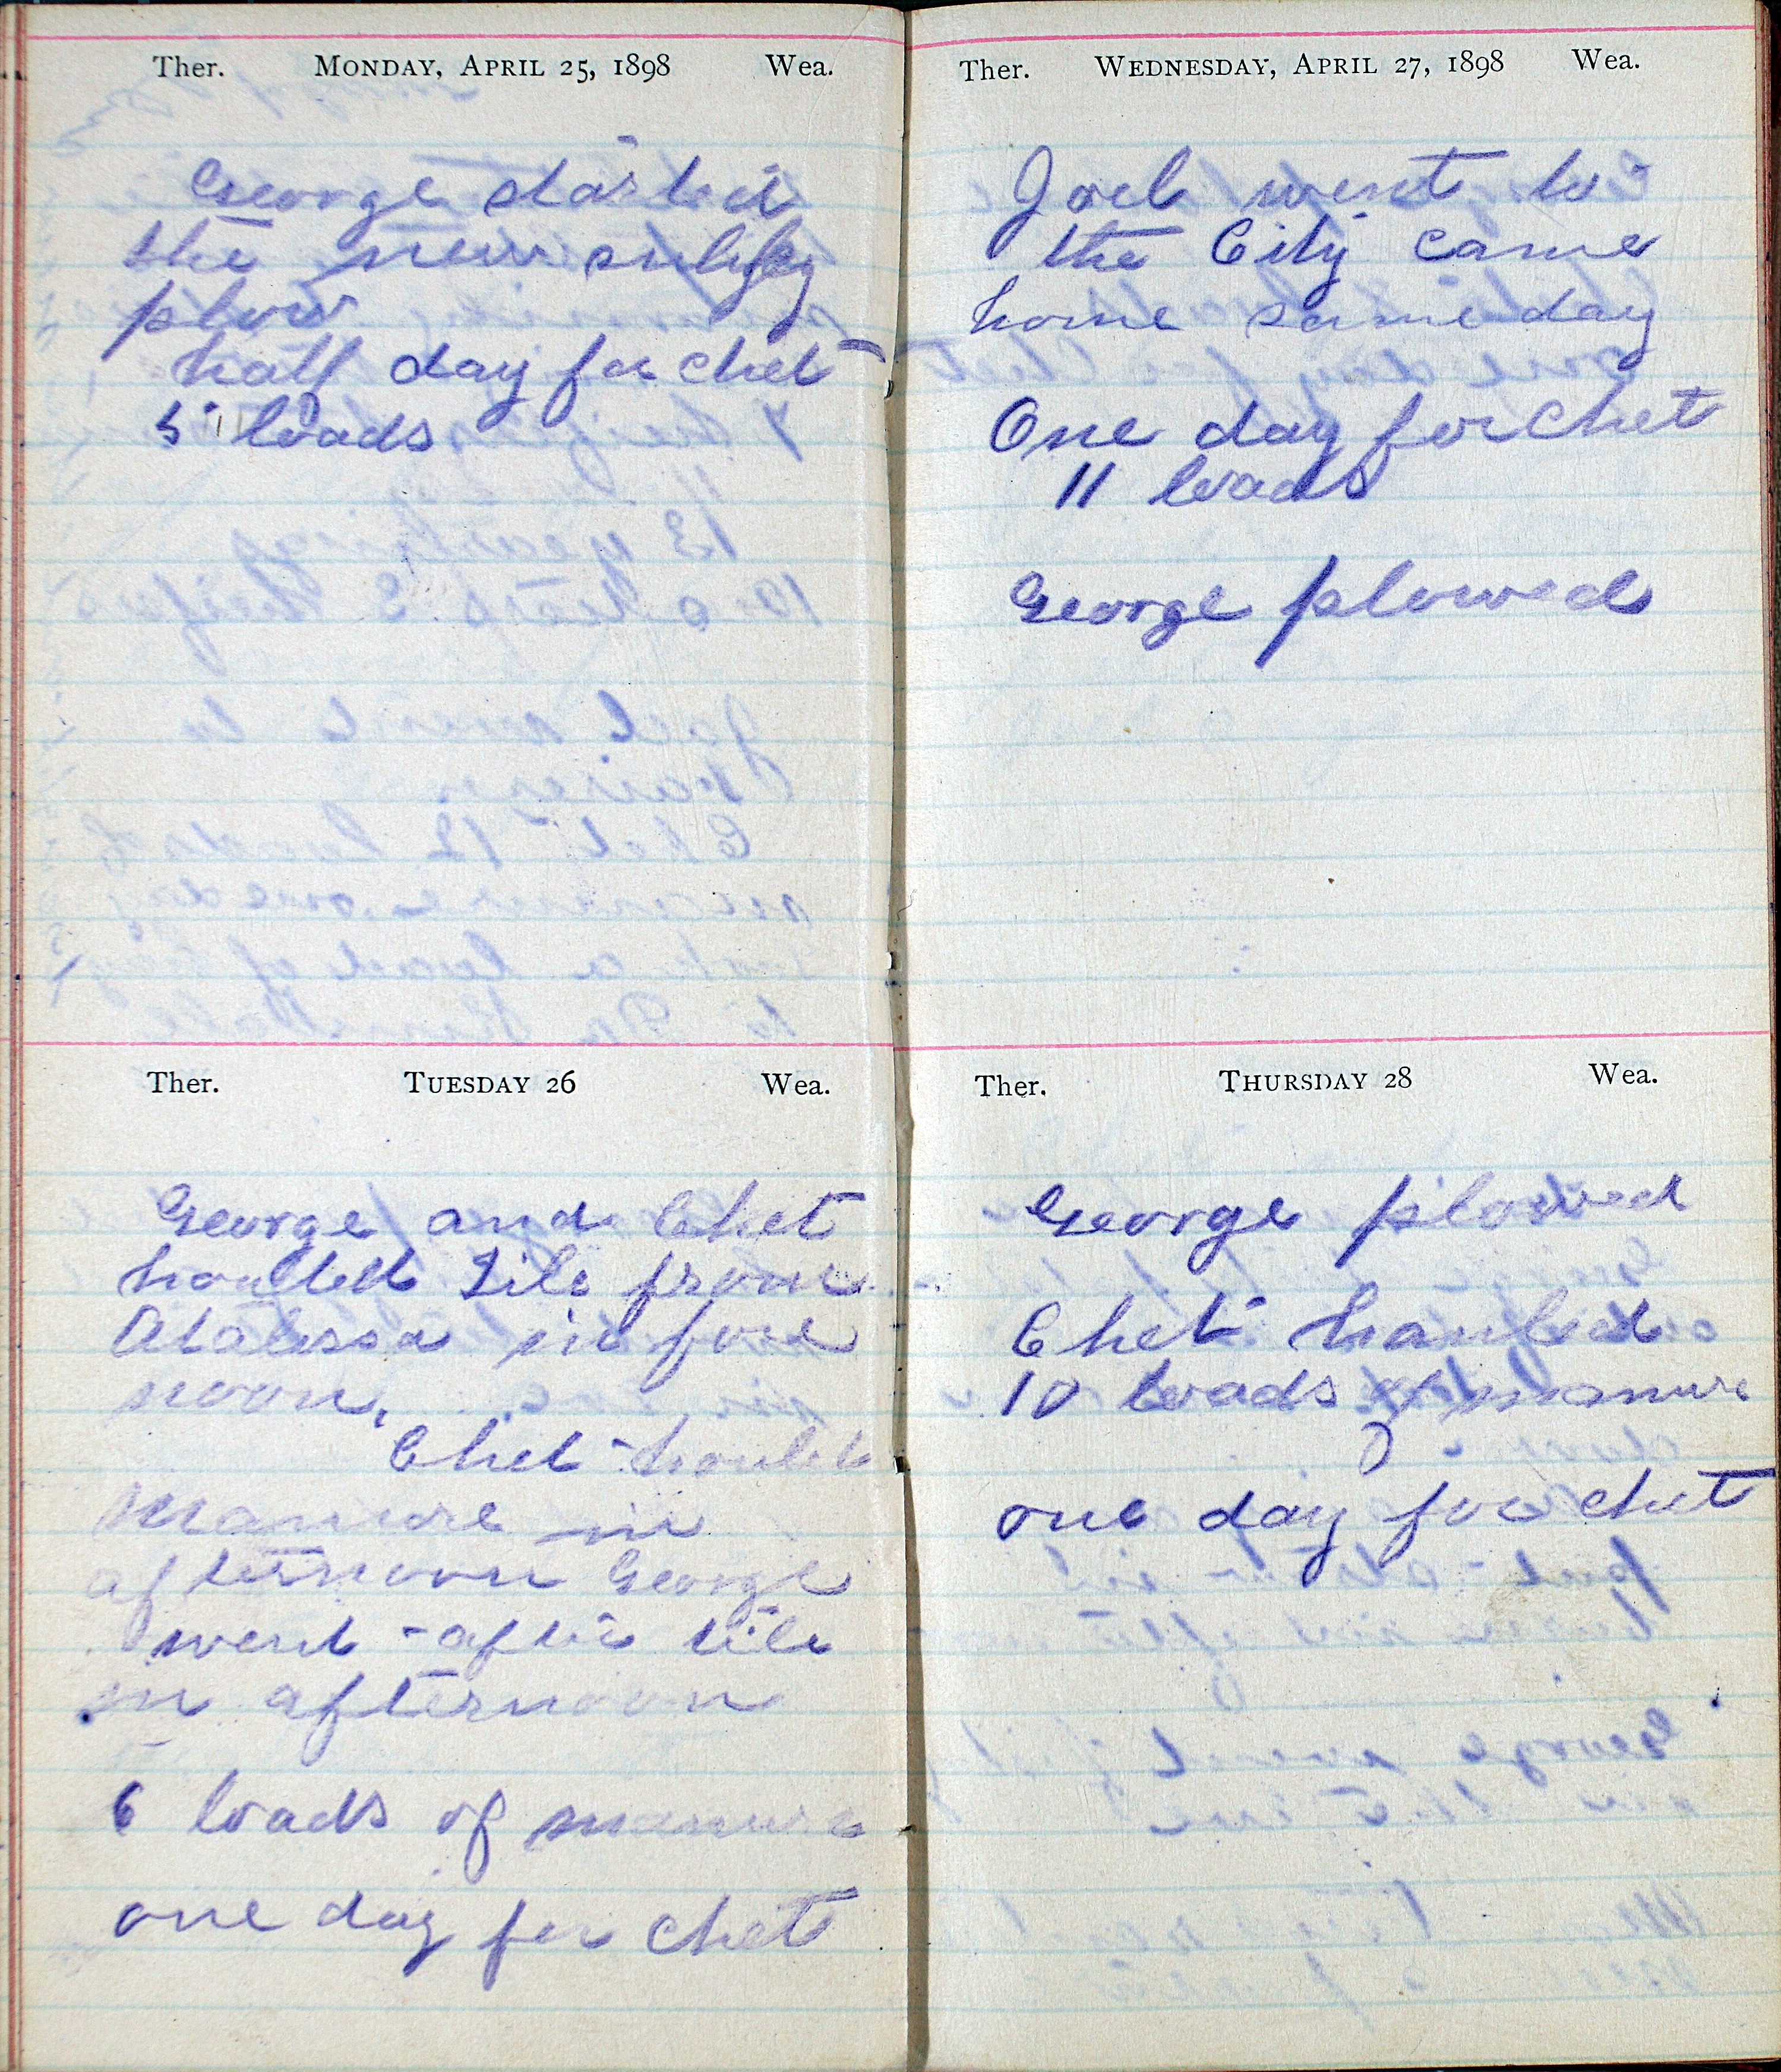 Ther. MONDAY, APRIL 25, 1898 Wea.
George started
the new sulkey
plow
half day for chet
5 loads
Ther. TUESDAY 26 Wea.
George and Chet
houlled Tile from
Atalissa in fore
noon.
Chet houled
manure in
afternoon George
went after tile
in afternoon
6 loads of manure
one day for chet
Ther. WEDNESDAY, APRIL 27, 1898 Wea.
Joel went to
the City came
home same day
One day for Chet
11 loads
George plowed
Ther. THURSDAY 28 Wea.
George plowed
Chet hauled
10 loads of manure
one day for chet